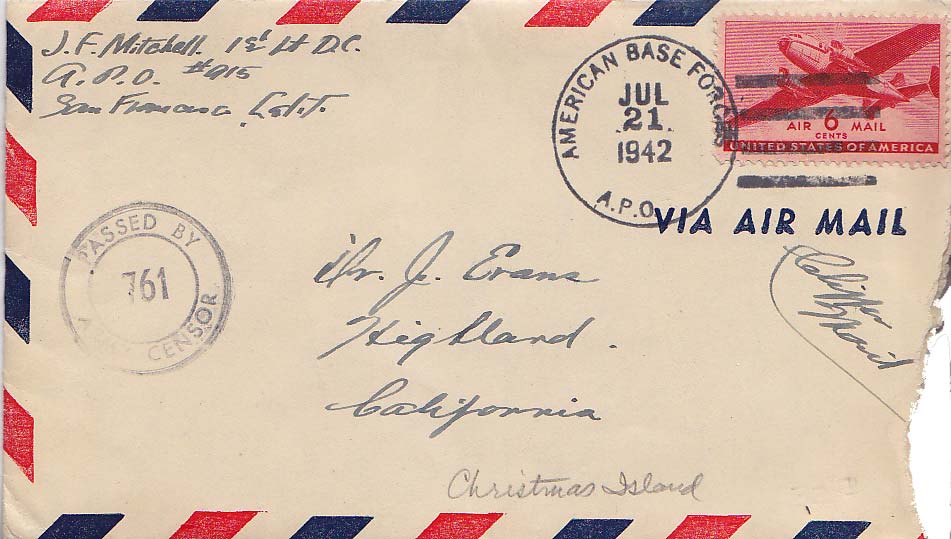 J. F. Mitchell. 1st Lt D.C.
A. P. O. #915
San Francisco, Calif.
AMERICAN BASE FORCES
JUL
21
1942
A.P.O.
AIR 6 MAIL
CENTS
UNITED STATES OF AMERICA
VIA AIR MAIL
PASSED BY
761
CENSOR
Dr. J. Evans
Highland.
California
Christmas Island